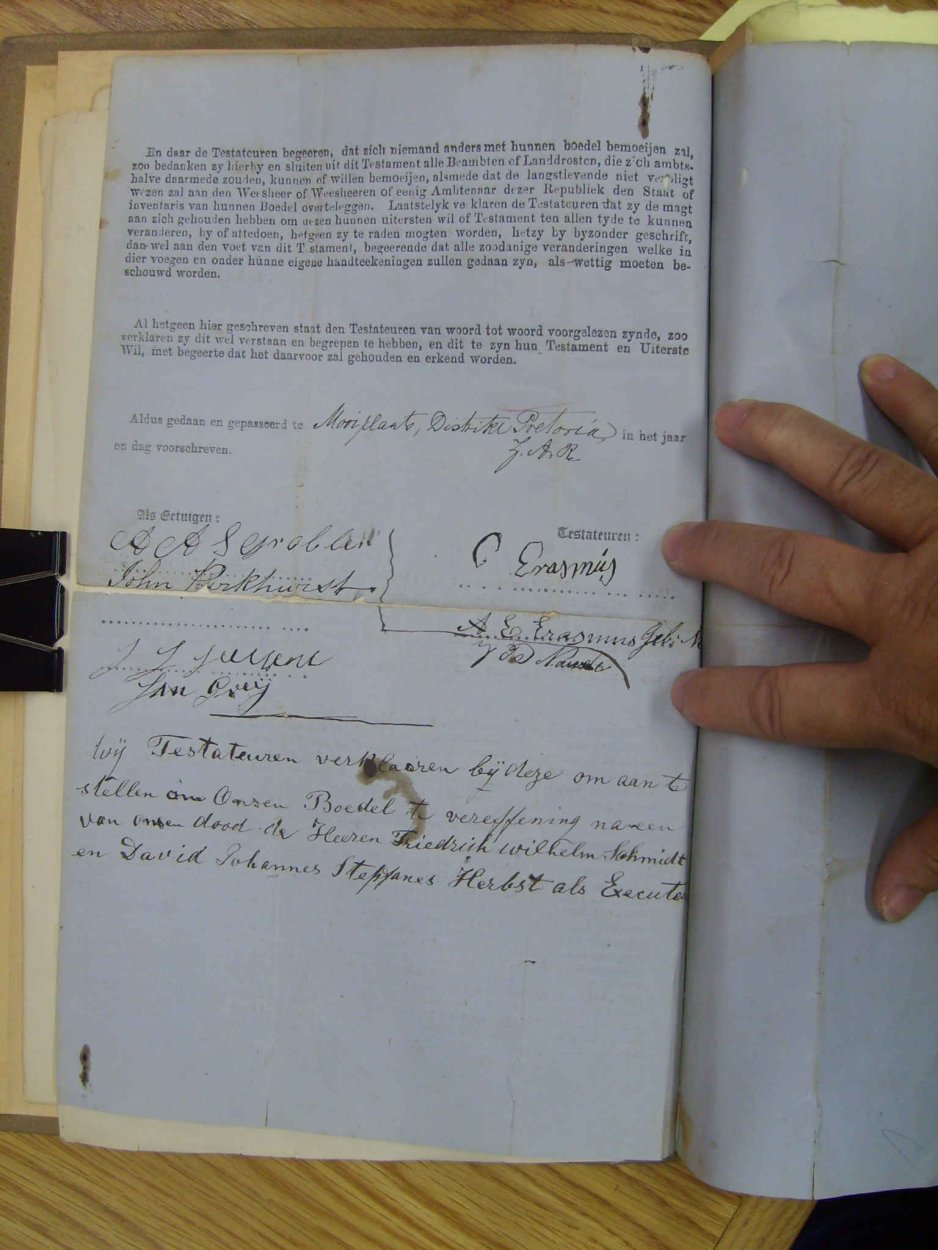 En daar de Testateuren begeeren, dat zich niemand anders met hunnen boedel bemoeijen zal,
zoo bedanken zy hierby en sluiten uit dit Testament alle Beambten of Landdrosten, die zich ambts-
halve daarmede zouden, kunnen of willen bemoeijen, alsmede dat de langstlevende niet verpligt
wezen zal aan den Weesheer of Weesheeren of eenig Ambtenaar dezer Republiek den Staat of
inventaris van hunnen Boedel overteleggen. Laatstelyk verklaren de Testateuren dat zy de magt
aan zich gehouden hebben om dezen hunnen uitersten wil of Testament ten allen tyde te kunnen
veranderen, by of aftedoen, hetgeen zy te raden mogten worden, hetzy by byzonder geschrift,
dan wel aan den voet van dit Testament, begeerende dat alle zoodanige veranderingen welke in
dier voegen en onder hunne eigene handteekeningen zullen gedaan zyn, als wettig moeten be-
schouwd worden.
Al hetgeen hier geschreven staat den Testateuren van woord tot woord voorgelezen zynde, zoo
verklaren zy dit wel verstaan en begrepen te hebben, en dit te zyn hun Testament en Uiterste
Wil, met begeerte dat het daarvoor zal gehouden en erkend worden.
Aldus gedaan en gepasseerd te Mooiplaats, Distrikt Pretoria, in het jaar
Z. A. R
en dag voorschreven.
Als Getuigen:
Testateuren:
A A S
C Erasmus
John Parkhurst
A E Erasmus Geb:
Jan
Wij Testateuren verklaaren bij deze om aan t
stellen om Onzen Boedel te vereffening na een
van onsen dood de Heeren Friedrich Wilhelm Schmidt
en David Johannes Steffanes Herbst als